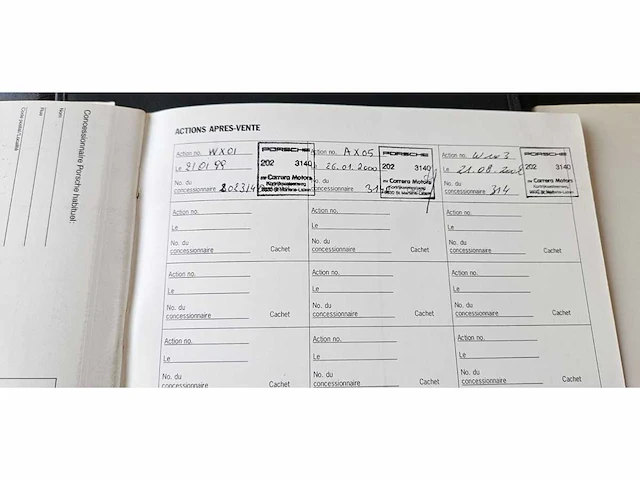 Concessionnaire Porsche habituel:
Nom
Rue
Code postal/Localité
ACTIONS APRES-VENTE
Action no. WX01
Le 21.01.99
No. du
concessionnaire
PORSCHE
202 3140
Carrera Motors
Action no. AX05
26.01.2000
No. du
concessionnaire
PORSCHE
202 3140
Carrera Motors
Action no.
Le
No. du
concessionnaire 314
PORSCHE
202 3140
Carrera Motors
Action no.
Le
No. du
concessionnaire Cachet
Action no.
Le
No. du
concessionnaire Cachet
Action no.
Le
No. du
concessionnaire Cachet
Action no.
Le
No. du
concessionnaire Cachet
Action no.
Le
No. du
concessionnaire Cachet
Action no.
Le
No. du
concessionnaire Cachet
Action no.
Le
No. du
concessionnaire Cachet
Action no.
Le
No. du
concessionnaire Cachet
Action no.
Le
No. du
concessionnaire Cachet